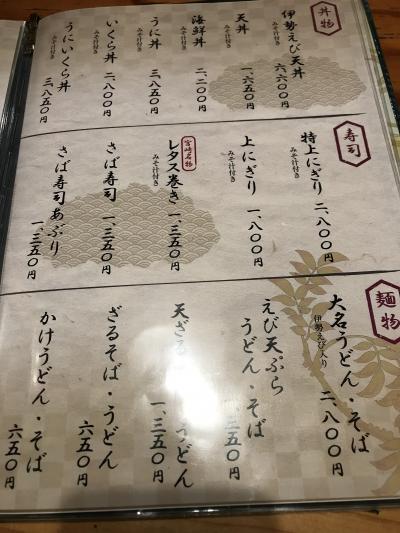 丼物
伊勢えび天丼 六、六〇〇円
みそ汁付き
天丼 一、六五〇円
みそ汁付き
海鮮丼 二、二〇〇円
みそ汁付き
うに丼 三、八五〇円
みそ汁付き
いくら丼 二、八〇〇円
みそ汁付き
うにいくら丼 三、八五〇円
みそ汁付き
寿司
特上にぎり 二、八〇〇円
みそ汁付き
上にぎり 一、八〇〇円
みそ汁付き
宮崎名物
レタス巻き 一、三五〇円
みそ汁付き
さば寿司 一、三五〇円
さば寿司あぶり 一、三五〇円
麺物
大名うどん・そば 二、八〇〇円
伊勢えび入り
えび天ぷら
うどん・そば 三五〇円
天ざる うどん 一、三五〇円
ざるそば・うどん 六五〇円
かけうどん・そば 六五〇円